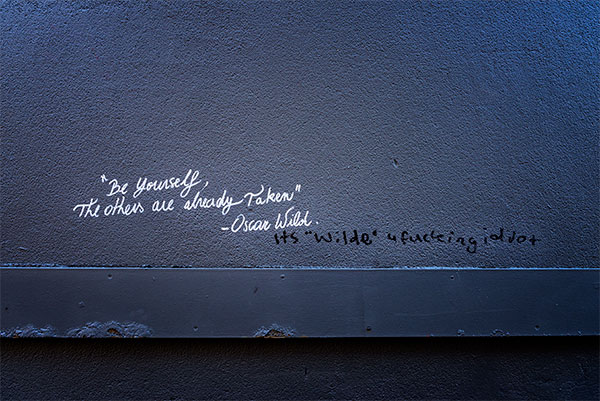 "Be Yourself,
The others are already Taken"
-Oscar Wild.
Its "Wilde" u fucking idiot